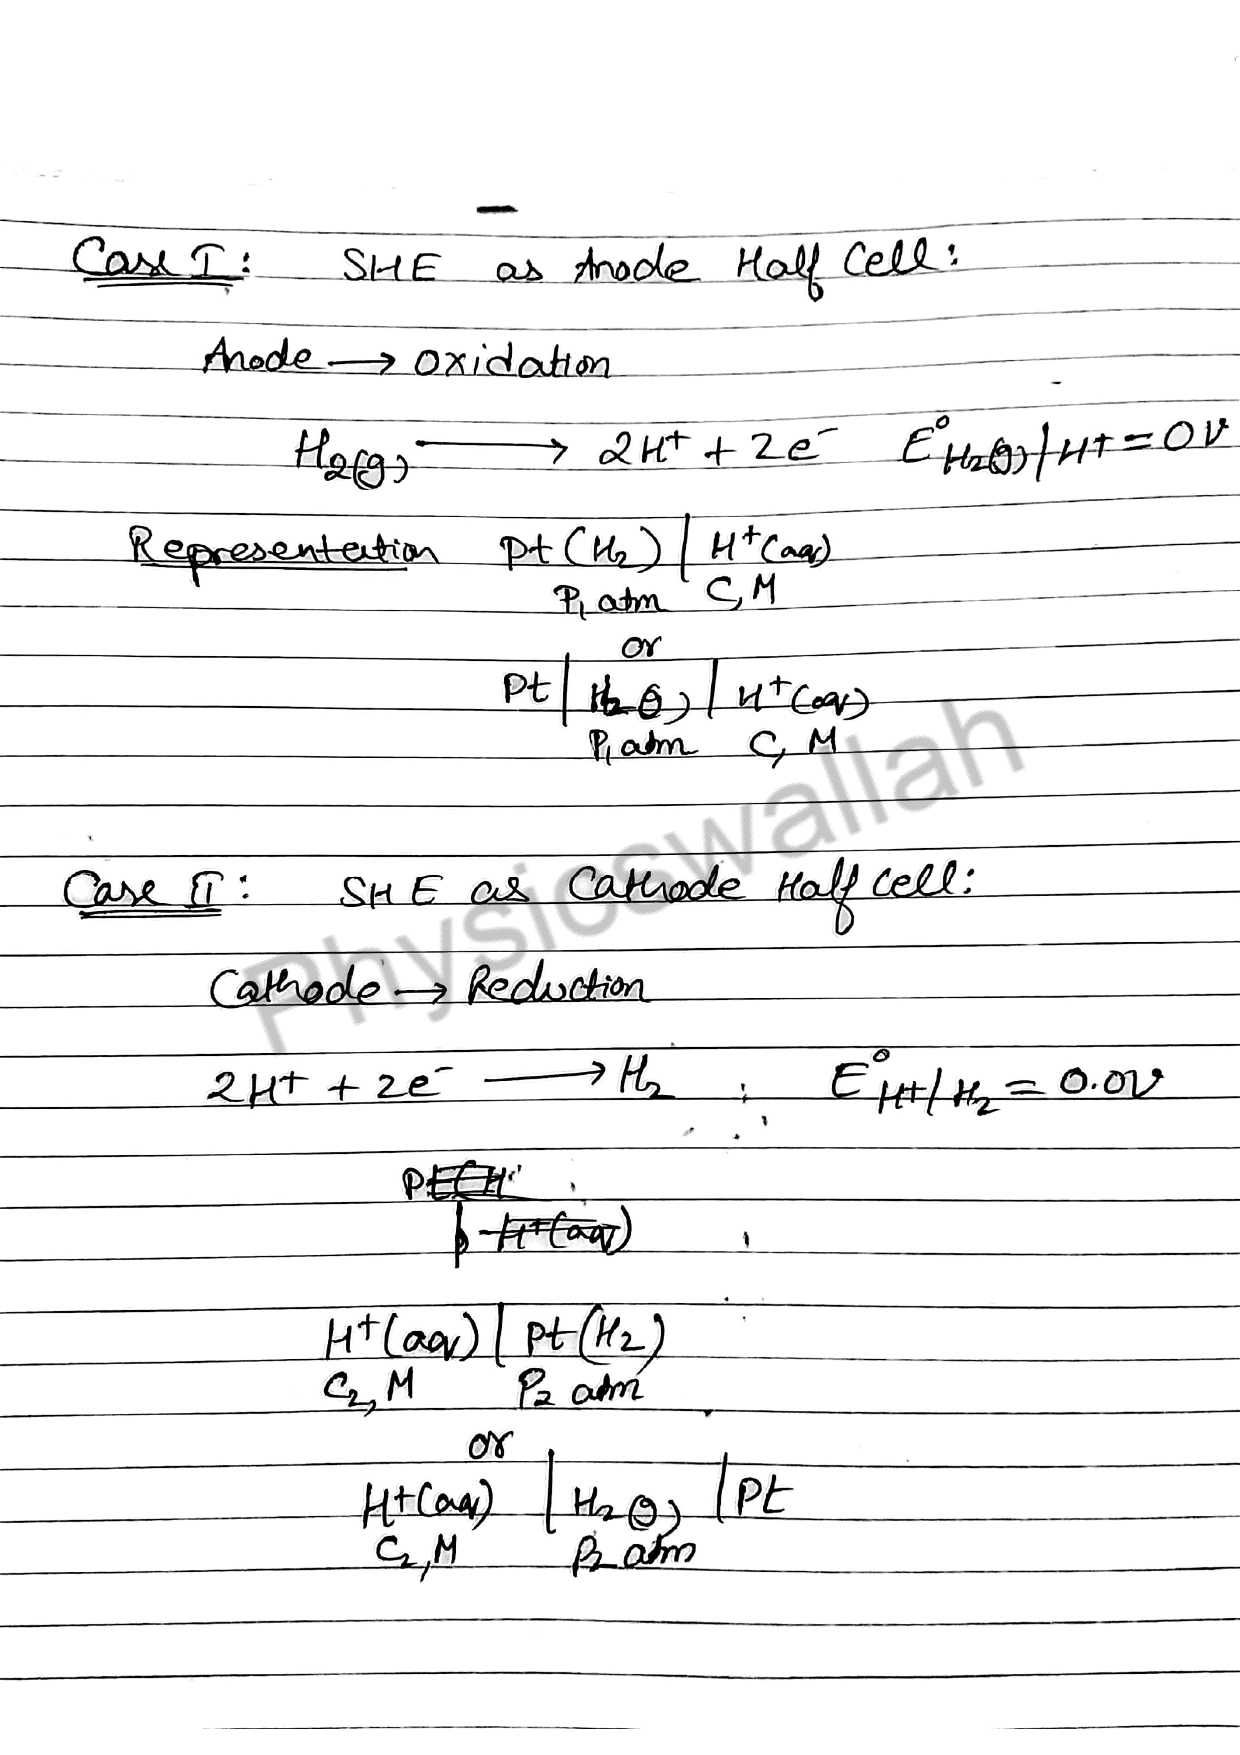 Case I: SHE as Anode Half Cell:
Anode → Oxidation
H₂(g) → 2H⁺ + 2e⁻ E°H₂(g)/H⁺ = 0V
Representation Pt(H₂) | H⁺(aq)
P₁ atm C₁ M
or
Pt | H₂(g) | H⁺(aq)
P₁ atm C₁ M
Physicswallah
Case II: SHE as Cathode Half Cell:
Cathode → Reduction
2H⁺ + 2e⁻ → H₂ ; E°H⁺/H₂ = 0.0V
H⁺(aq) | Pt(H₂)
C₂, M P₂ atm
or
H⁺(aq) | H₂(g) | Pt
C₂, M P₂ atm